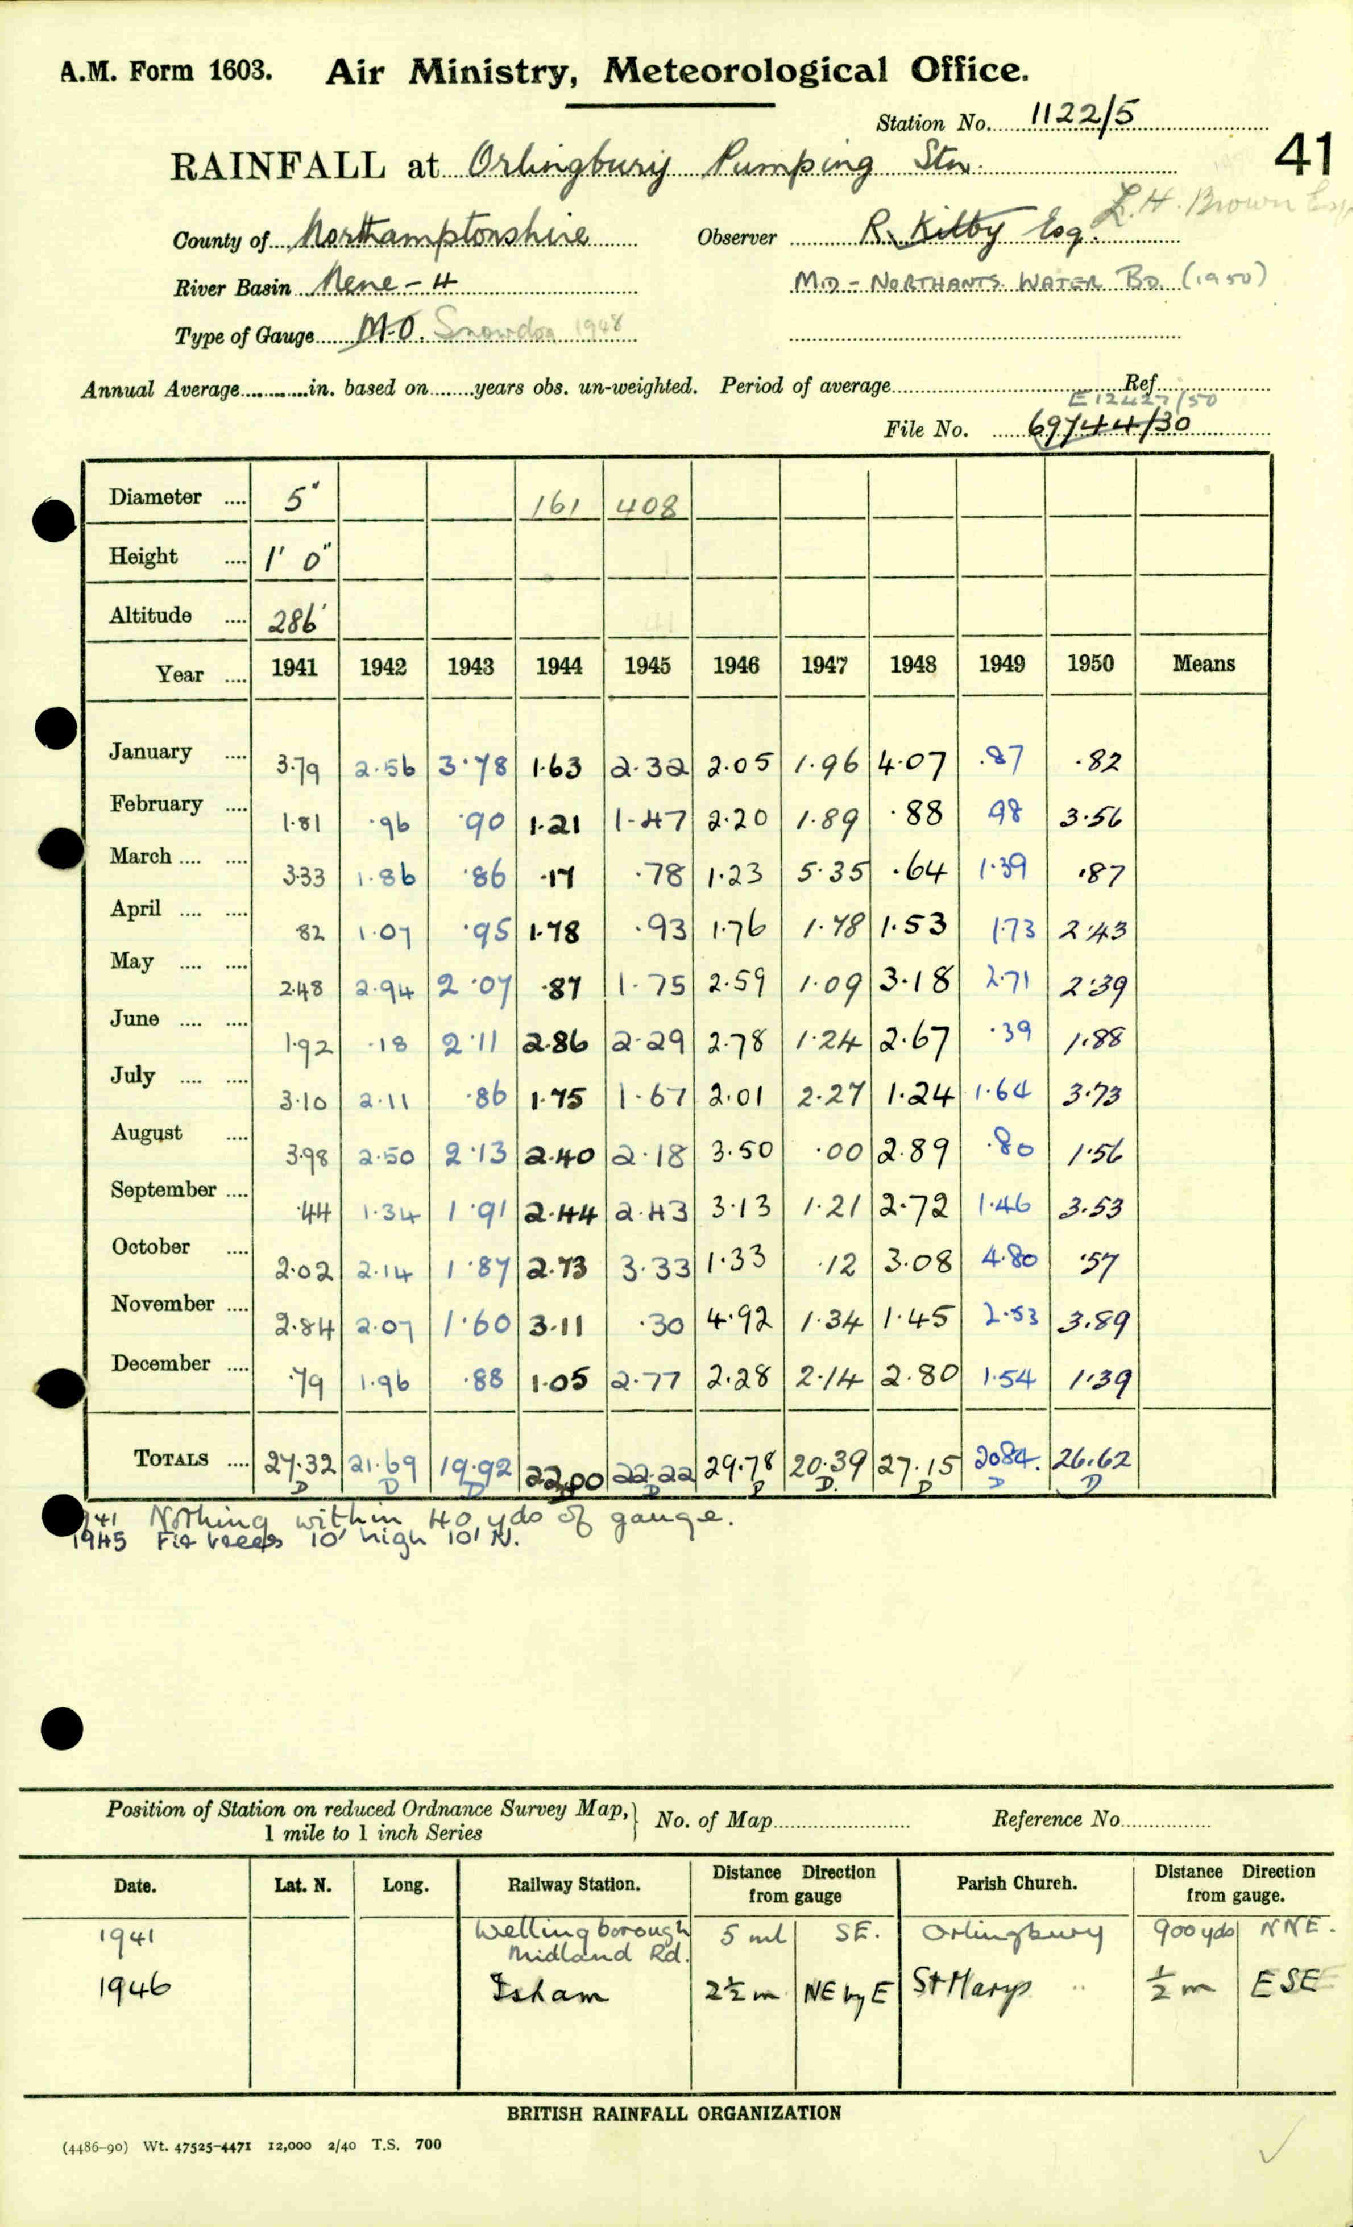 A.M. Form 1603. Air Ministry, Meteorological Office.
Station No. 1122/5
41
RAINFALL at Orlingbury Pumping Stn.
County of Northamptonshire Observer R. Kilby Esq. L.H. Brown Esq
River Basin Nene - 4 MD - NORTHANTS WATER BD. (1950)
Type of Gauge M.O. Snowdon 1948
Annual Average............in. based on........years obs. un-weighted. Period of average.......... Ref..........
E12427/50
File No. 69744/30
Diameter .... 5" 161 408
Height .... 1' 0"
Altitude .... 286'
Year .... 1941 1942 1943 1944 1945 1946 1947 1948 1949 1950 Means
January .... 3.79 2.56 3.78 1.63 2.32 2.05 1.96 4.07 .87 .82
February .... 1.81 .96 .90 1.21 1.47 2.20 1.89 .88 98 3.56
March .... .... 3.33 1.86 .86 .17 .78 1.23 5.35 .64 1.39 .87
April .... .... 82 1.07 .95 1.78 .93 1.76 1.78 1.53 1.73 2.43
May .... .... 2.48 2.94 2.07 .87 1.75 2.59 1.09 3.18 2.71 2.39
June .... .... 1.92 .18 2.11 2.86 2.29 2.78 1.24 2.67 .39 1.88
July .... .... 3.10 2.11 .86 1.75 1.67 2.01 2.27 1.24 1.64 3.73
August .... 3.98 2.50 2.13 2.40 2.18 3.50 .00 2.89 .80 1.56
September .... .44 1.34 1.91 2.44 2.43 3.13 1.21 2.72 1.46 3.53
October .... 2.02 2.14 1.87 2.73 3.33 1.33 .12 3.08 4.80 .57
November .... 2.84 2.07 1.60 3.11 .30 4.92 1.34 1.45 2.53 3.89
December .... .79 1.96 .88 1.05 2.77 2.28 2.14 2.80 1.54 1.39
TOTALS .... 27.32 21.69 19.92 22.00 22.22 29.78 20.39 27.15 20.84. 26.62
D D D D D D D D D
41 Nothing within 40 yds of gauge.
1945 Fir trees 10' high 10' N.
Position of Station on reduced Ordnance Survey Map, 1 mile to 1 inch Series } No. of Map.......... Reference No..........
Date. Lat. N. Long. Railway Station. Distance Direction from gauge Parish Church. Distance Direction from gauge.
1941 Wellingborough Midland Rd. 5 ml SE. Orlingbury 900 yds NNE.
1946 Isham 2½ m NE by E St Marys " ½ m ESE
BRITISH RAINFALL ORGANIZATION
(4486-90) Wt. 47525-4471 12,000 2/40 T.S. 700